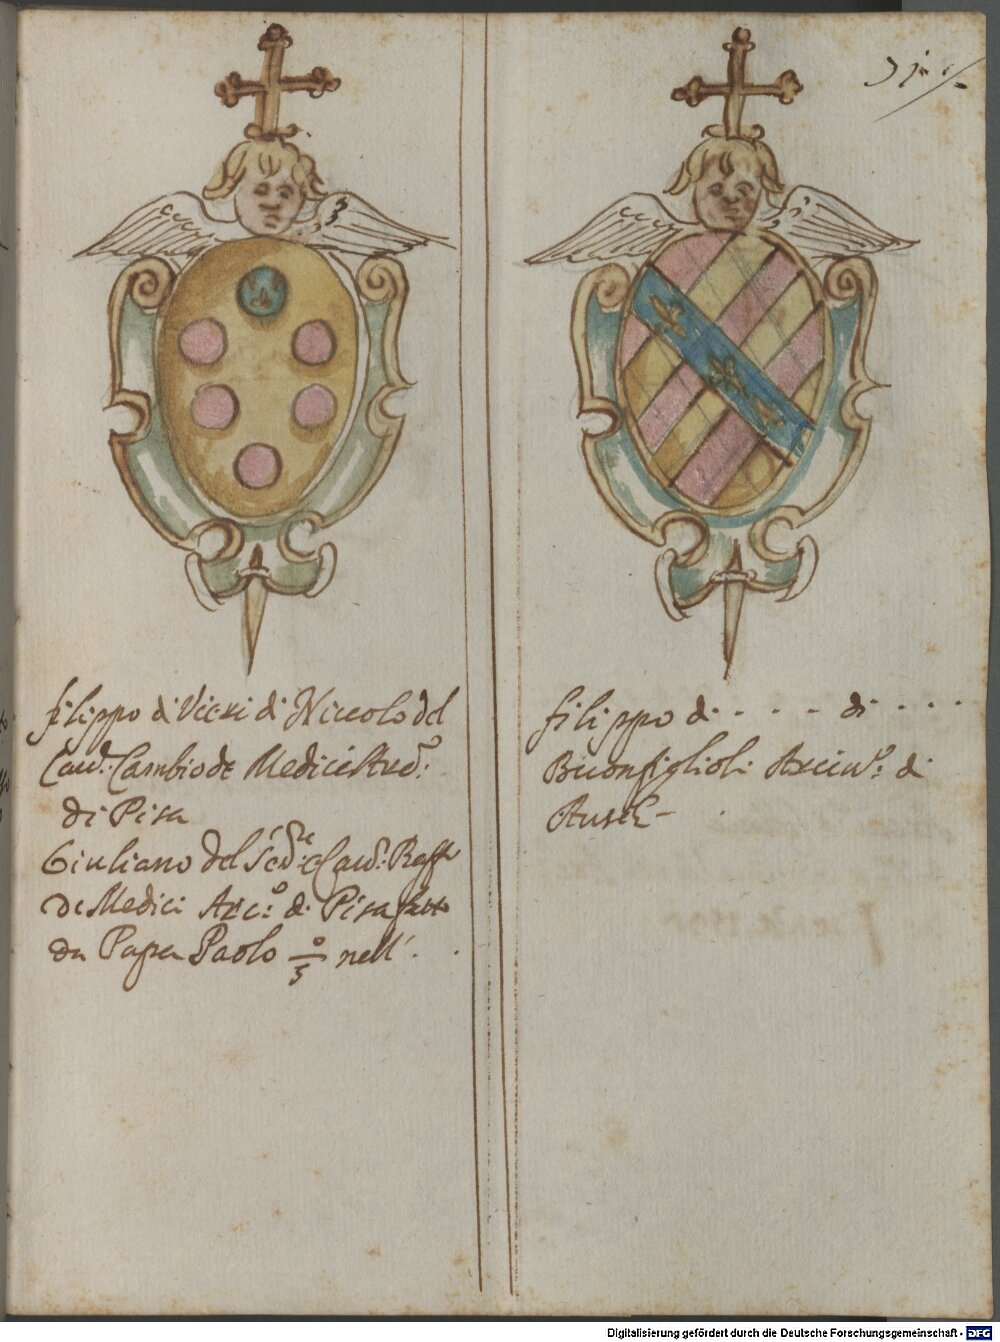 filippo di Vieri di Niccolo del
Cav.r Cambio de Medici
di Pisa
Giuliano del Cav.r Raff
de Medici Arc.o di Pisa fatto
da Papa Paolo 5 o nell'.
filippo di - - - - di - - -
Buonfiglioli Arciv.o di
Digitalisierung gefördert durch die Deutsche Forschungsgemeinschaft - DFG